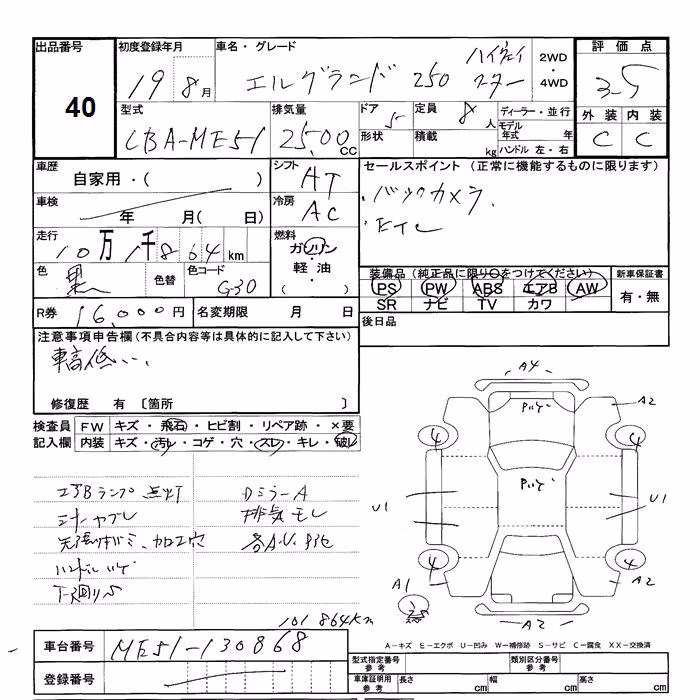 出品番号
40
初度登録年月
19 8月
車名・グレード
エルグランド 250 ハイウェイスター
2WD
・
4WD
評価点
3.5
外装 内装
C C
型式
CBA-ME51
排気量
2500 CC
ドア 5
定員 8人
形状
積載 kg
ディーラー・並行
モデル年式 年
ハンドル 左・右
車歴
自家用・( )
車検
年 月( 日)
走行
10万1千864km
色
黒
色替
色コード
G30
シフト
AT
冷房
AC
燃料
ガソリン
・
軽油
・
( )
セールスポイント(正常に機能するものに限ります)
・バックカメラ.
・ETC
装備品(純正品に限り○をつけてください)
PS PW ABS エアB AW
SR ナビ TV カワ
新車保証書
有・無
後日品
R券 16,000円
名変期限 月 日
注意事項申告欄(不具合内容等は具体的に記入して下さい)
車高低い、
修復歴 有 〔箇所 〕
検査員記入欄
FW キズ・飛石・ヒビ割・リペア跡・×要
内装 キズ・汚レ・コゲ・穴・スレ・キレ・破レ
エアBランプ点灯
シートヤブレ
天張キバミ、カロエ穴
ハンドルハゲ
下廻りS
Dミラー A
排気モレ
各A.U.
101864km
A4
A2
4
4
U1
U1
4
4
A1
A2
A2
車台番号
ME51-130868
登録番号
A-キズ E-エクボ U-凹み W-補修跡 S-サビ C-腐食 XX-交換済
型式指定番号
参考
類別区分番号
参考
車庫証明用
参考
長さ cm
幅 cm
高さ cm